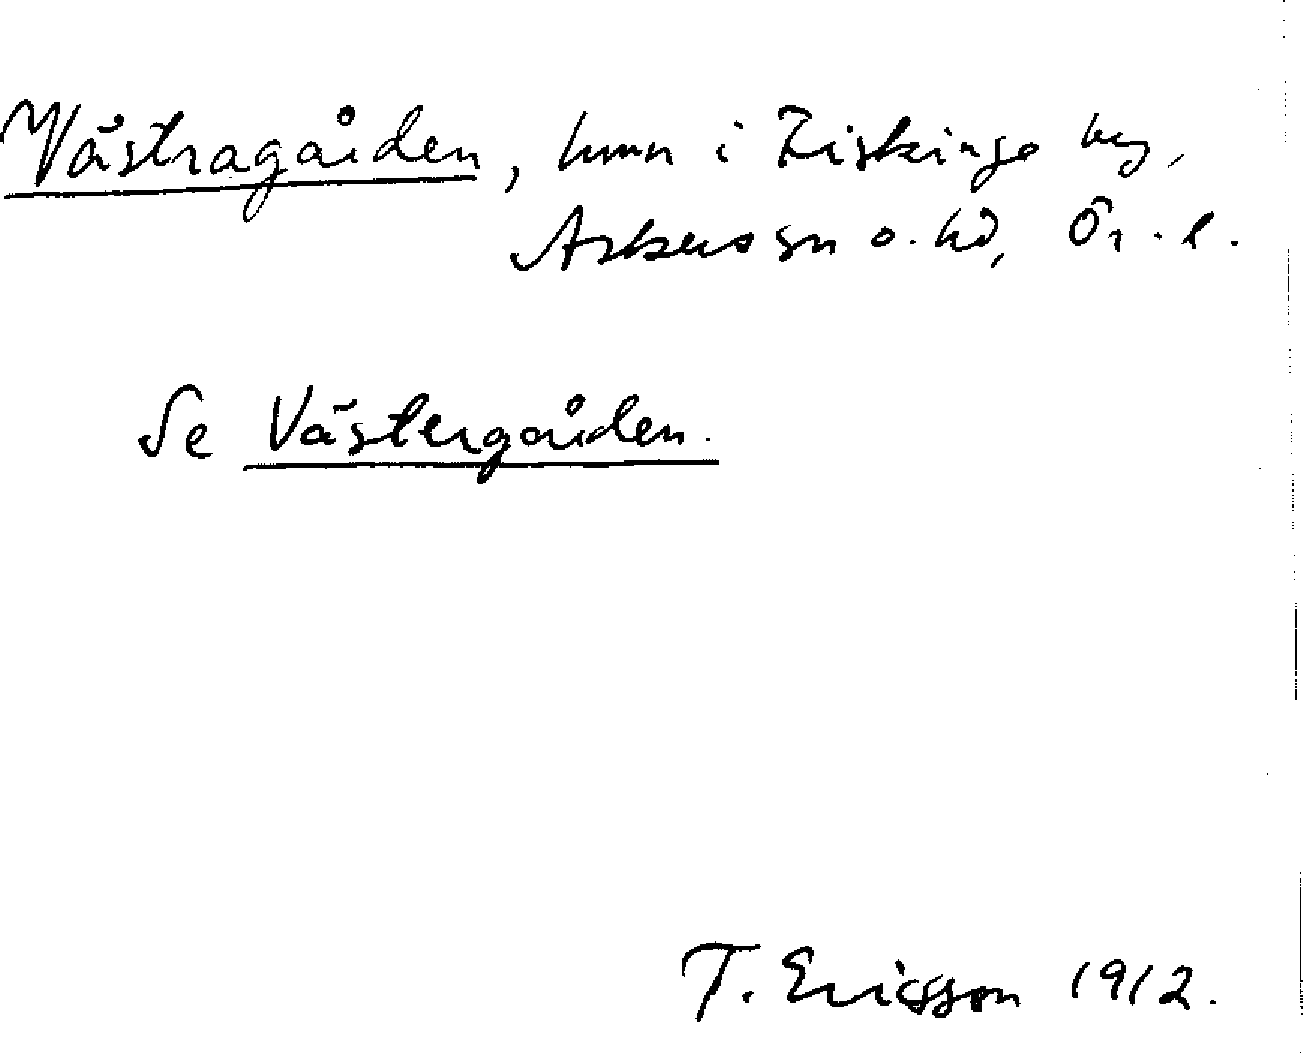 Västragården, hmn i Ziskinge by,
Askers sn o. hd, Ör. l.
Se Västergården.
T. Ericsson 1912.